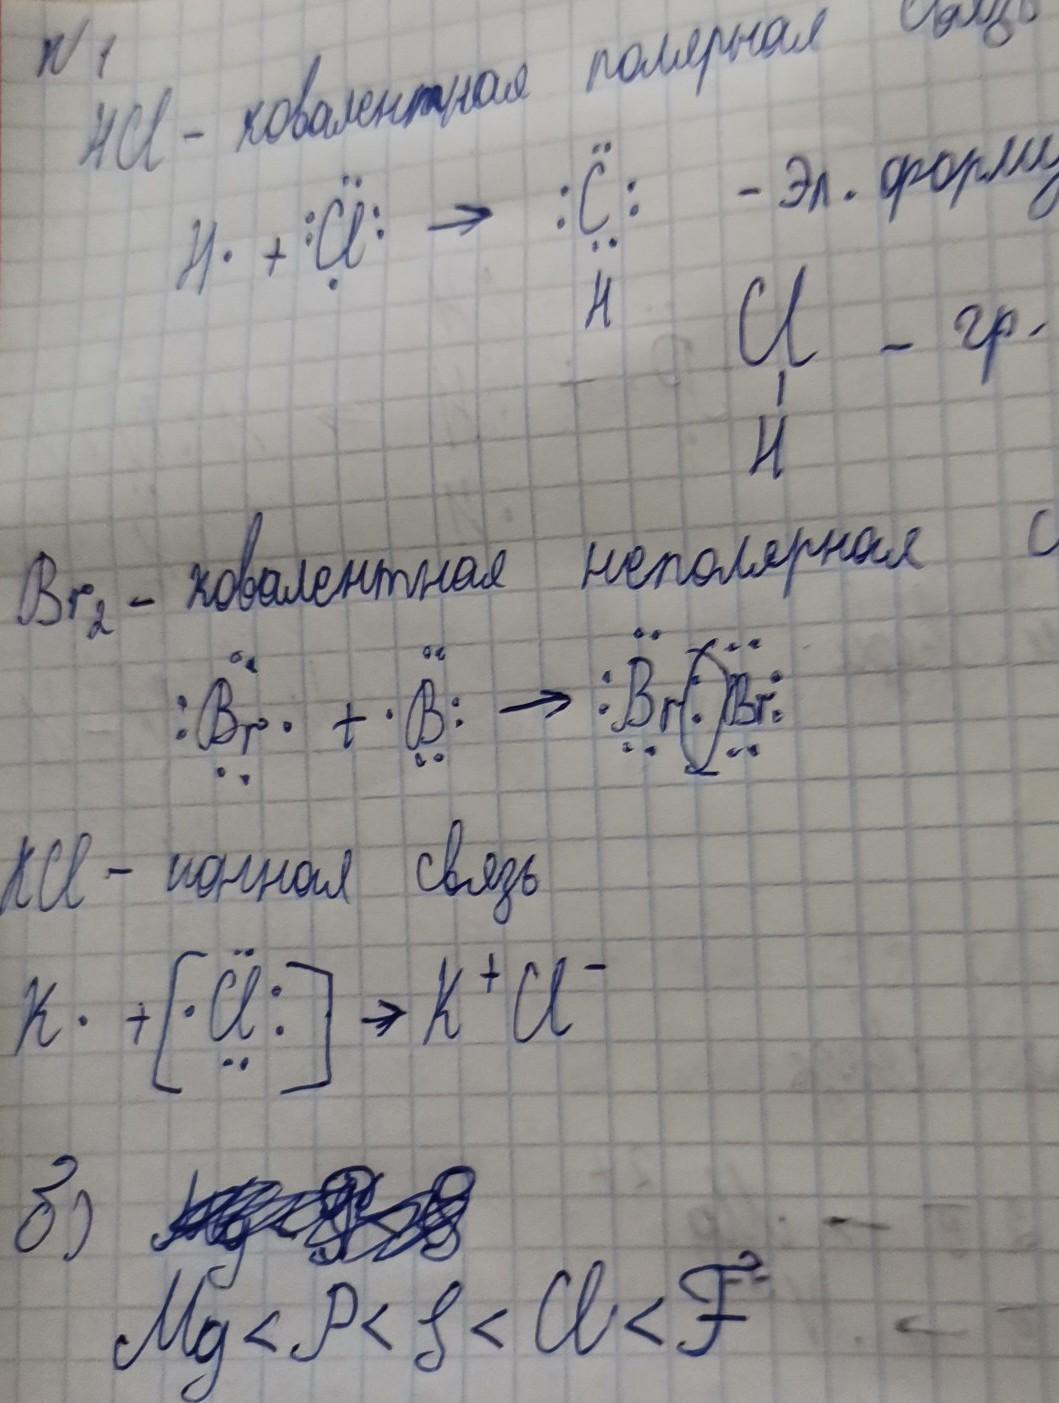 №1
HCl - ковалентная полярная связь
H· + :C̈l: → :C̈: - Эл. форму
H
Cl - гр.
|
H
Br₂ - ковалентная неполярная с
:B̤̈r· + ·B̤̈: → :B̤̈r(:)B̤̈r:
KCl - ионная связь
K· + [·C̤̈l:] → K⁺Cl⁻
б)
Mg < P < S < Cl < F